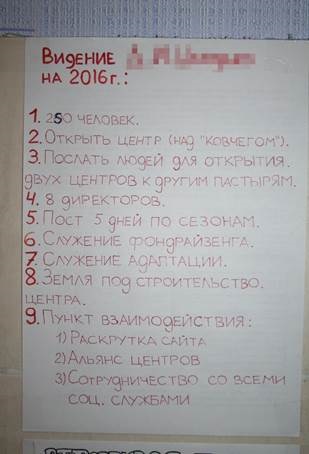 Видение
на 2016г.:
1. 250 человек.
2. Открыть центр (над "Ковчегом").
3. Послать людей для открытия.
двух центров к другим пастырям.
4. 8 директоров.
5. Пост 5 дней по сезонам.
6. Служение фондрайзенга.
7. Служение адаптации.
8. Земля под строительство.
центра.
9. Пункт взаимодействия:
1) Раскрутка сайта
2) Альянс центров
3) Сотрудничество со всеми
соц. службами